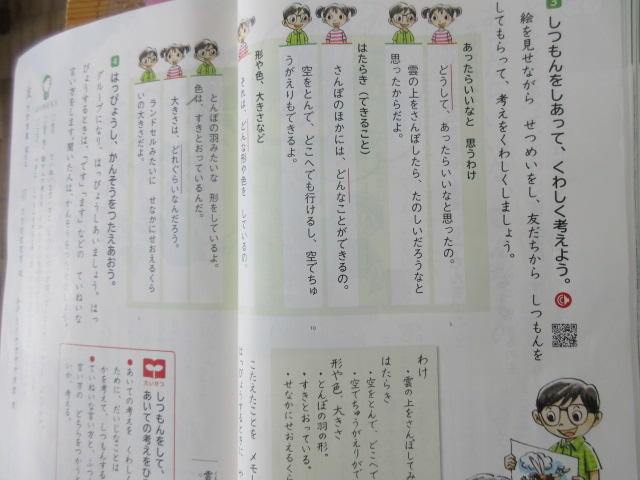 3 しつもんをしあって、くわしく考えよう。
絵を見せながら せつめいをし、友だちから しつもんを
してもらって、考えをくわしくしましょう。
あったらいいなと 思うわけ
どうして、あったらいいなと思ったの。
雲の上をさんぽしたら、たのしいだろうなと
思ったからだよ。
はたらき(できること)
さんぽのほかには、どんなことができるの。
空をとんで、どこへでも行けるし、空でちゅ
うがえりもできるよ。
形や色、大きさなど
それは、どんな形や色を しているの。
とんぼの羽みたいな 形をしているよ。
色は、すきとおっているんだ。
大きさは、どれぐらいなんだろう。
ランドセルみたいに せなかにせおえるくら
いの大きさだよ。
4 はっぴょうし、かんそうをつたえあおう。
グループになり、はっぴょうしあいましょう。はっ
ぴょうするときは、「です」「ます」などの ていねいな
言い方をします。聞いた人は、
わけ
・雲の上をさんぽしてみ
はたらき
・空をとんで、どこへで
・空でちゅうがえりがで
形や色、大きさ
・とんぼの羽の形。
・すきとおっている。
・せなかにせおえるくら
こたえたことを メモし
はっぴょうするときに
たいせつ
しつもんをして、
あいての考えをひ
●あいての考えを くわしく
ために、だいじなことは
かを考えて、しつもんする
●ていねいな言い方と、ふつ
言い方の どちらをつかうと
いか、考える。